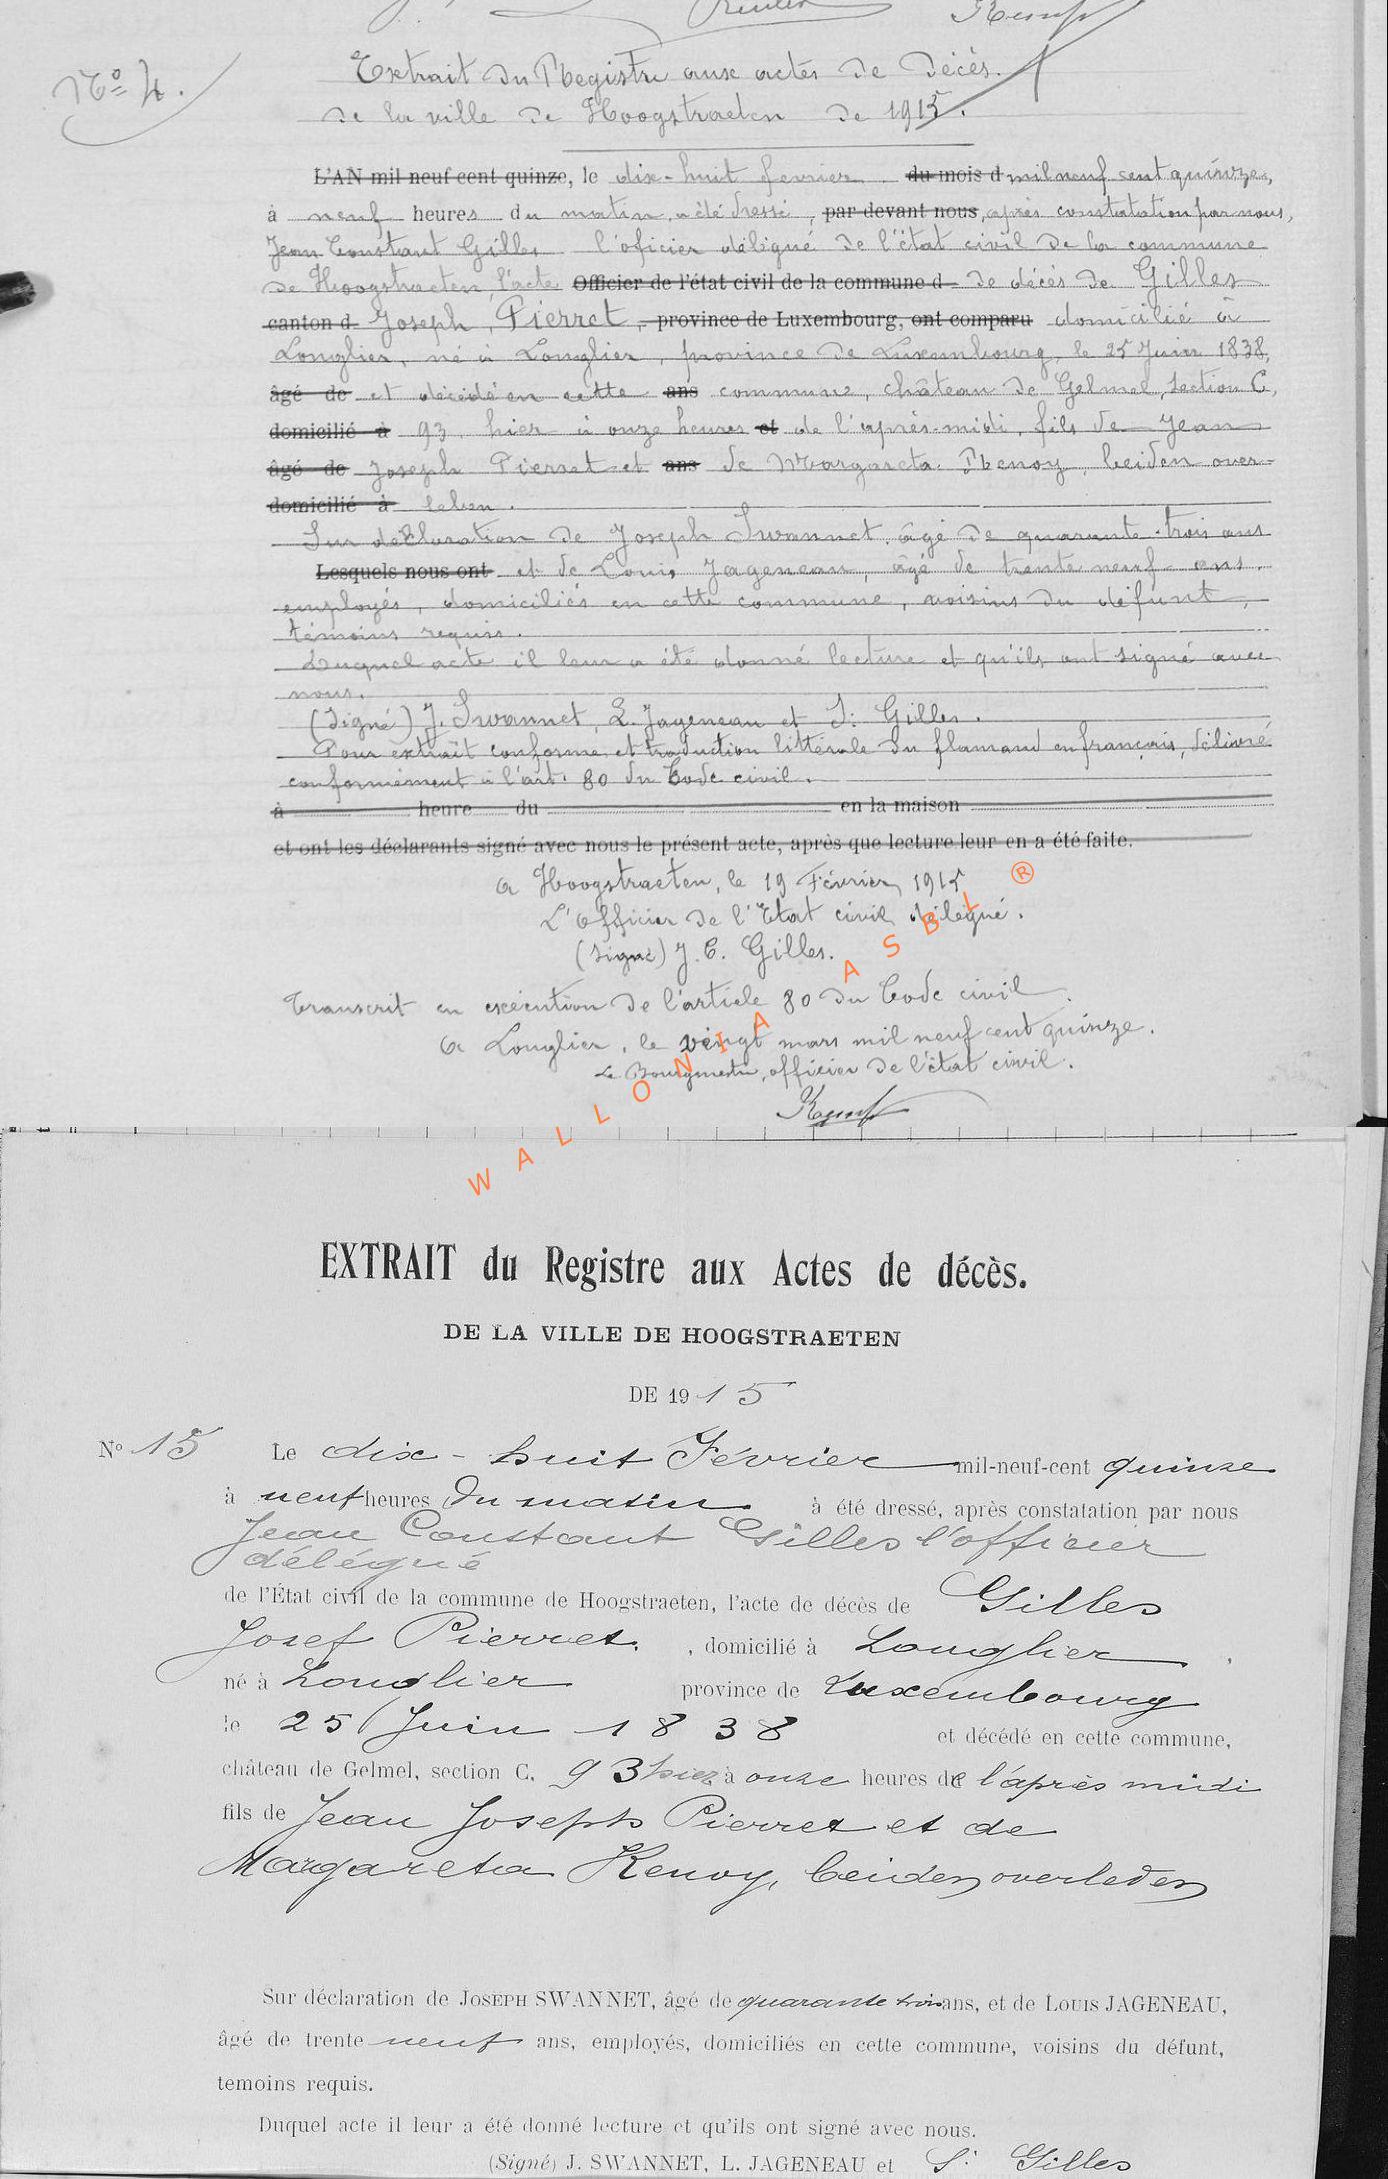 Reuter Kempf
No 4.
Extrait du Registre aux actes de décès.
de la ville de Hoogstraeten de 1915.
L'AN mil neuf cent quinze, le dix-huit février du mois d mil neuf cent quinze,
à neuf heures du matin, a été dressé, par devant nous, après constatation par nous,
Jean Constant Gilles l'oficier délégué de l'état civil de la commune
de Hoogstraeten, l'acte Officier de l'état civil de la commune d de décès de Gilles
canton d Joseph, Pierret, province de Luxembourg, ont comparu domicilié à
Longlier, né à Longlier, province de Luxembourg, le 25 Juin 1838,
âgé de et décédé en cette ans commune, château de Gelmel, section C,
domicilié à 93, hier à onze heures et de l'après-midi, fils de Jean
âgé de Joseph Pierret et ans de Margareta Renoy, beiden over-
domicilié à leben.
Sur déclaration de Joseph Swannet, âgé de quarante-trois ans
Lesquels nous ont et de Louis Jageneau, âgé de trente neuf ans,
employés, domiciliés en cette commune, voisins du défunt,
témoins requis.
Duquel acte il leur a été donné lecture et qu'ils ont signé avec
nous.
(Signé) J. Swannet, L. Jageneau et S: Gilles.
Pour extrait conforme et traduction littérale du flamand en français, délivré
conformément à l'art. 80 du Code civil.
à heure du en la maison
et ont les déclarants signé avec nous le présent acte, après que lecture leur en a été faite.
A Hoogstraeten, le 19 Février 1915
L'Officier de l'Etat civil délégué.
(signé) J. C. Gilles.
Transcrit en exécution de l'article 80 du Code civil.
A Longlier, le vingt mars mil neuf cent quinze.
Le Bourgmestre, officier de l'état civil.
Kempf
WALLONIA ASBL ®
EXTRAIT du Registre aux Actes de décès.
DE LA VILLE DE HOOGSTRAETEN
DE 1915
No 15 Le dix-huit Février mil-neuf-cent quinze
à neuf heures du matin à été dressé, après constatation par nous
Jean Constant Gilles l'officier
délégué
de l'État civil de la commune de Hoogstraeten, l'acte de décès de Gilles
Josef Pierret. , domicilié à Longlier.
né à Longlier province de Luxembourg
le 25 Juin 1838 et décédé en cette commune,
château de Gelmel, section C, 93 hier à onze heures de l'après midi
fils de Jean Joseph Pierret et de
Margareta Renoy, beiden overleden
Sur déclaration de JOSEPH SWANNET, âgé de quarante trois ans, et de LOUIS JAGENEAU,
âgé de trente neuf ans, employés, domiciliés en cette commune, voisins du défunt,
temoins requis.
Duquel acte il leur a été donné lecture et qu'ils ont signé avec nous.
(Signé) J. SWANNET, L. JAGENEAU et S: Gilles